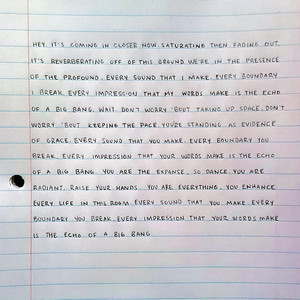 HEY, IT'S COMING IN CLOSER NOW, SATURATING THEN FADING OUT.
IT'S REVERBERATING OFF OF THIS GROUND. WE'RE IN THE PRESENCE
OF THE PROFOUND. EVERY SOUND THAT I MAKE. EVERY BOUNDARY
I BREAK. EVERY IMPRESSION THAT MY WORDS MAKE IS THE ECHO
OF A BIG BANG. WAIT. DON'T WORRY 'BOUT TAKING UP SPACE. DON'T
WORRY 'BOUT KEEPING THE PACE. YOU'RE STANDING AS EVIDENCE
OF GRACE. EVERY SOUND THAT YOU MAKE. EVERY BOUNDARY YOU
BREAK. EVERY IMPRESSION THAT YOUR WORDS MAKE IS THE ECHO
OF A BIG BANG. YOU ARE THE EXPANSE, SO DANCE. YOU ARE
RADIANT. RAISE YOUR HANDS. YOU ARE EVERYTHING. YOU ENHANCE
EVERY LIFE IN THIS ROOM. EVERY SOUND THAT YOU MAKE. EVERY
BOUNDARY YOU BREAK. EVERY IMPRESSION THAT YOUR WORDS MAKE
IS THE ECHO OF A BIG BANG